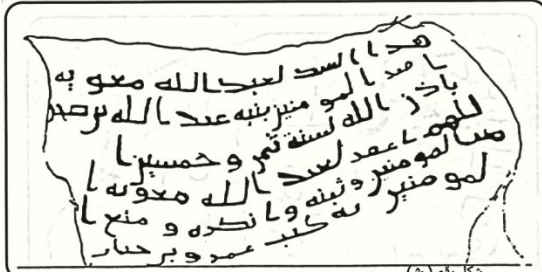 هذا السد لعبد الله معويه
امير المومنين بنيه عبد الله بن صخر
باذن الله لسنة ثمن وخمسين ا
للهم اغفر لعبد الله معويه ا
مير المومنين وثبته وانصره ومتع ا
لمومنين به كتب عمرو بن
شكل رقم